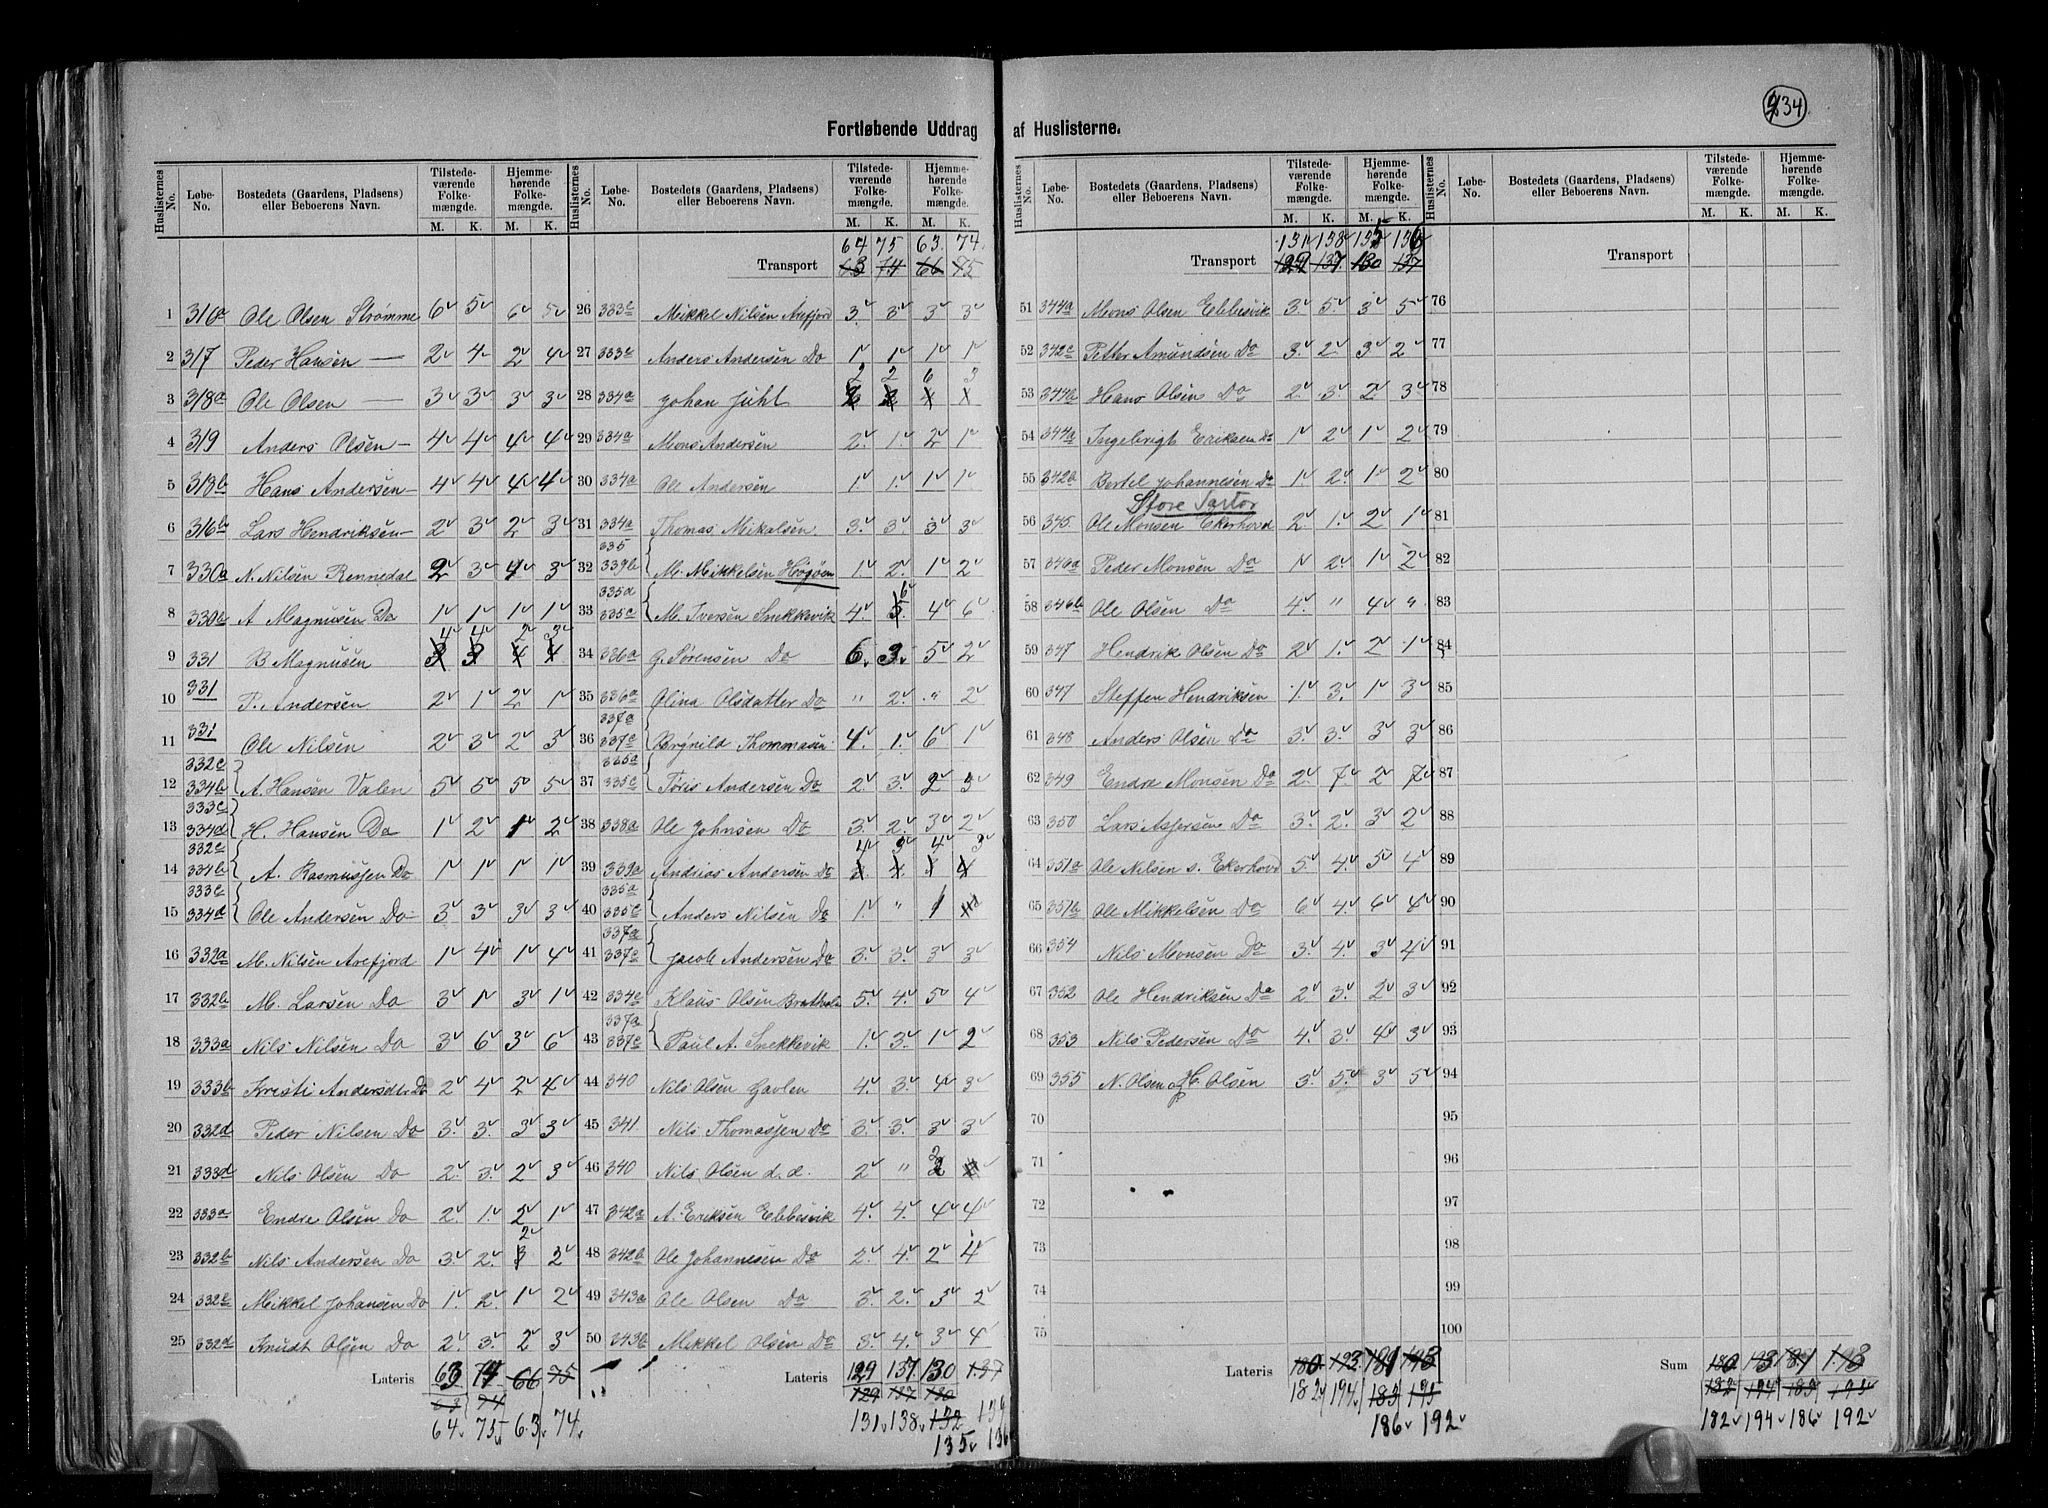 434
Fortløbende Uddrag af Huslisterne.
Huslisternes No. Løbe-No. Bostedets (Gaardens, Pladsens) eller Beboerens Navn. Tilstedeværende Folkemængde. M. K. Hjemmehørende Folkemængde. M. K.
1 316a Ole Olsen Strømme 6 5 6 5
2 317 Peder Hansen — 2 4 2 4
3 318a Ole Olsen — 3 3 3 3
4 319 Anders Olsen — 4 4 4 4
5 318b Hans Andersen — 4 4 4 4
6 316b Lars Hendriksen — 2 3 2 3
7 330a N. Nilsen Rennedal 2 3 4 3
8 330b A Magnusen Do 1 1 1 1
9 331 B Magnusen 4 4 2 3
10 331 P. Andersen 2 1 2 1
11 331 Ole Nilsen 2 3 2 3
12 332c 334b A. Hansen Valen 5 5 5 5
13 333c 334d H. Hansen Do 1 2 1 2
14 332c 334b A. Rasmussen Do 1 1 1 1
15 333c 334d Ole Andersen Do 3 3 3 3
16 332a M. Nilsen Arefjord 1 4 1 4
17 332b M. Larsen Do 3 1 3 1
18 333a Nils Nilsen Do 3 6 3 6
19 333b Kristi Andersdtr Do 2 4 2 4
20 332d Peder Nilsen Do 3 3 3 3
21 333d Nils Olsen Do 2 3 2 3
22 333a Endre Olsen Do 2 1 2 1
23 332b Nils Andersen Do 3 2 2 2
24 332e Mikkel Johansen Do 1 2 1 2
25 332d Knudt Olsen Do 2 3 2 3
Lateris 63 74 66 75
64 75 63 74
Huslisternes No. Løbe-No. Bostedets (Gaardens, Pladsens) eller Beboerens Navn. Tilstedeværende Folkemængde. M. K. Hjemmehørende Folkemængde. M. K.
64 75 63 74
Transport 63 74 66 75
26 333c Mikkel Nilsen Arefjord 3 3 3 3
27 333c Anders Andersen Do 1 1 1 1
28 334a Johan Juhl 2 2 6 3
29 334a Mons Andersen 2 1 2 1
30 334a Ole Andersen 1 1 1 1
31 334a Thomas Mikalsen 3 3 3 3
32 335 339b M. Mikkelsen Høgøen 1 2 1 2
33 335d 335c M. Iversen Snekkevik 4 6 4 6
34 336a G. Sørensen Do 6 3 5 2
35 336a Olina Olsdatter Do " 2 " 2
36 337a 337c Brynild Thommasen 4 1 6 1
37 335a 335c Toris Andersen Do 2 3 2 3
38 338a Ole Johnsen Do 3 2 3 2
39 339a Andrias Andersen Do 4 3 4 3
40 335a 335c Anders Nilsen Do 1 " 1
41 337a 337c Jacob Andersen Do 3 3 3 3
42 334c Klaus Olsen Bratholm 5 4 5 4
43 337a 337c Paul A. Snekkevik 1 3 1 2
44 340 Nils Olsen Gavlen 4 3 4 3
45 341 Nils Thomassen Do 3 3 3 3
46 340 Nils Olsen d. e. 2 " 2
47 342a A. Eriksen Ebbesvik 4 4 4 4
48 342b Ole Johannesen Do 2 4 2 4
49 343a Ole Olsen Do 3 2 3 2
50 343b Mikkel Olsen Do 3 4 3 4
Lateris 129 137 130 137
129 137 130
131 138 132
135 136
Huslisternes No. Løbe-No. Bostedets (Gaardens, Pladsens) eller Beboerens Navn. Tilstedeværende Folkemængde. M. K. Hjemmehørende Folkemængde. M. K.
131 138 135 136
Transport 129 137 130 137
51 344a Mons Olsen Ebbesvik 3 5 3 5
52 342c Petter Amundsen Do 3 2 3 2
53 344b Hans Olsen Do 2 3 2 3
54 344a Ingebrigt Eriksen Do 1 2 1 2
55 342b Bertel Johannesen Do 1 2 1 2
Store Sartor
56 345 Ole Monsen Ekerhovd 2 1 2 1
57 346a Peder Monsen Do 1 2 1 2
58 346b Ole Olsen Do 4 " 4 "
59 347 Hendrik Olsen Do 2 1 2 1
60 347 Steffen Hendriksen 1 3 1 3
61 348 Anders Olsen Do 3 3 3 3
62 349 Endre Monsen Do 2 7 2 7
63 350 Lars Asjersen Do 3 2 3 2
64 351a Ole Nilsen s. Ekerhovd 5 4 5 4
65 351b Ole Mikkelsen Do 6 4 6 4
66 354 Nils Monsen Do 3 4 3 4
67 352 Ole Hendriksen Do 2 3 2 3
68 353 Nils Pedersen Do 4 3 4 3
69 355 N. Olsen & H. Olsen 3 5 3 5
70
71
72
73
74
75
Lateris 180 193 181 193
182 194 183 195
186 192
Huslisternes No. Løbe-No. Bostedets (Gaardens, Pladsens) eller Beboerens Navn. Tilstedeværende Folkemængde. M. K. Hjemmehørende Folkemængde. M. K.
Transport
76
77
78
79
80
81
82
83
84
85
86
87
88
89
90
91
92
93
94
95
96
97
98
99
100
Sum 180 193 181 193
182 194 183 195
182 194 186 192